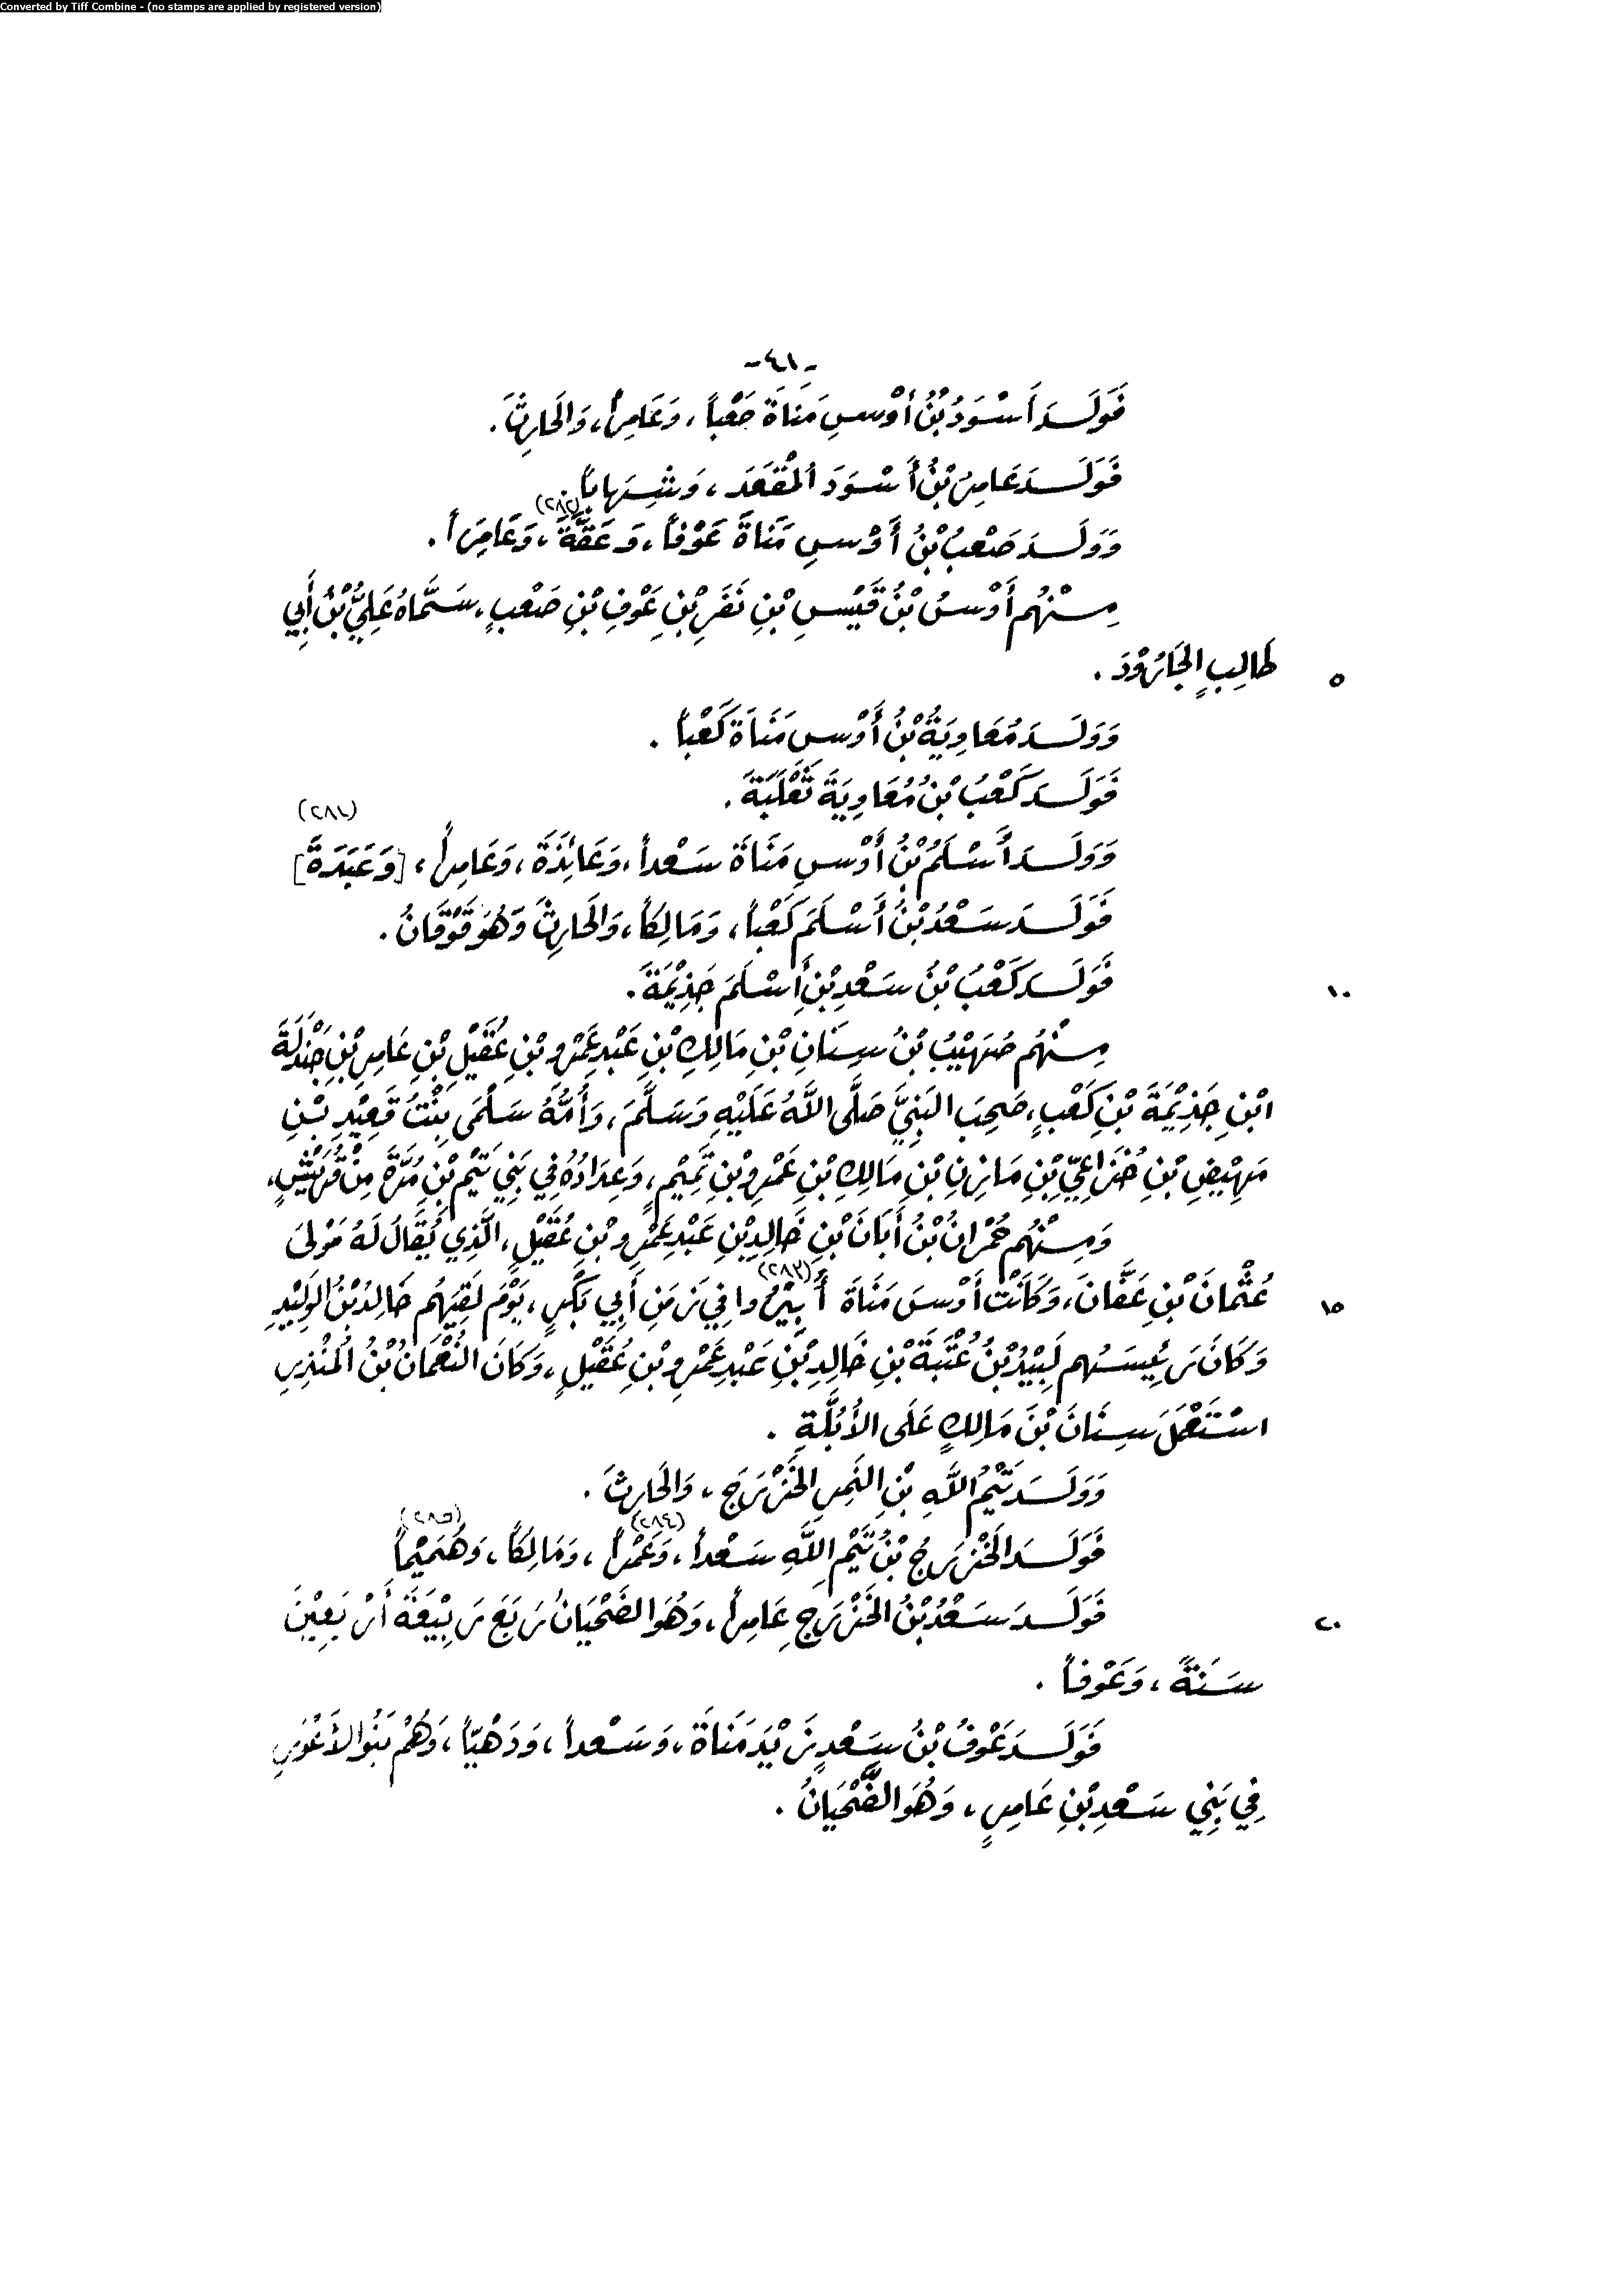 Converted by Tiff Combine - (no stamps are applied by registered version)
-٤١-
فَوَلَـدَ أَسْوَدُ بْنُ أَوْسِ مَنَاةَ صَعْباً، وَعَامِراً، وَالحَارِثَ.
فَوَلَـدَ عَامِرُ بْنُ أَسْوَدَ المُقْعَدَ، وَشِهَاباً.
وَوَلَـدَ صَعْبُ بْنُ أَوْسِ مَنَاةَ عَوْفاً، وَعَقَّةَ(٢٨٢)، وَعَامِراً.
مِنْهُم أَوْسُ بْنُ قَيْسِ بْنِ نَفَرِ بْنِ عَوْفِ بْنِ صَعْبٍ، سَمَّاهُ عَلِيُّ بْنُ أَبِي
٥ طَالِبٍ الجَارُوْدَ.
وَوَلَـدَ مُعَاوِيَةُ بْنُ أَوْسِ مَنَاةَ كَعْباً.
فَوَلَـدَ كَعْبُ بْنُ مُعَاوِيَةَ ثَعْلَبَةَ.
وَوَلَـدَ أَسْلَمُ بْنُ أَوْسِ مَنَاةَ سَعْداً، وَعَائِذَةَ، وَعَامِراً، [وَعَبَدَةَ]
فَوَلَـدَ سَعْدُ بْنُ أَسْلَمَ كَعْباً، وَمَالِكاً، وَالحَارِثَ وَهُوَ قَوْقَانُ.
١٠ فَوَلَـدَ كَعْبُ بْنُ سَعْدِ بْنِ أَسْلَمَ جَذِيْمَةَ.
مِنْهُم صُهَيْبُ بْنُ سِنَانِ بْنِ مَالِكِ بْنِ عَبْدِ عَمْرِو بْنِ عُقَيْلِ بْنِ عَامِرِ بْنِ جَنْدَلَةَ
ابْنِ جَذِيْمَةَ بْنِ كَعْبٍ، صَحِبَ النَّبِيَّ صَلَّى اللَّهُ عَلَيْهِ وَسَلَّمَ، وَأُمُّهُ سَلْمَى بِنْتُ قَعِيْدِ بْنِ
مَهِيْضِ بْنِ خُزَاعِيِّ بْنِ مَازِنِ بْنِ مَالِكِ بْنِ عَمْرِو بْنِ تَمِيْمٍ، وَعِدَادُهُ فِي بَنِي تَيْمِ بْنِ مُرَّةَ مِنْ قُرَيْشٍ،
وَمِنْهُم حُمْرَانُ بْنُ أَبَانَ بْنِ خَالِدِ بْنِ عَبْدِ عَمْرِو بْنِ عُقَيْلٍ، الَّذِي يُقَالُ لَهُ مَوْلَى
١٥ عُثْمَانَ بْنِ عَفَّانَ، وَكَانَتْ أَوْسَ مَنَاةَ أُبِيْرُوا(٢٨٣) فِي زَمَنِ أَبِي بَكْرٍ، يَوْمَ لَقِيَهُم خَالِدُ بْنُ الوَلِيْدِ
وَكَانَ رَئِيسَهُم لَبِيْدُ بْنُ عُتْبَةَ بْنِ خَالِدِ بْنِ عَبْدِ عَمْرِو بْنِ عُقَيْلٍ، وَكَانَ النُّعْمَانُ بْنُ المُنْذِرِ
اسْتَعْمَلَ سِنَانَ بْنَ مَالِكٍ عَلَى الأُبُلَّةِ.
وَوَلَـدَ تَيْمُ اللَّهِ بْنِ النَّمِرِ الخَزْرَجَ، وَالحَارِثَ.
فَوَلَـدَ الخَزْرَجُ بْنُ تَيْمِ اللَّهِ سَعْداً، وَعَمْراً(٢٨٤)، وَمَالِكاً، وَهُمَيْماً(٢٨٥)
٢٠ فَوَلَـدَ سَعْدُ بْنُ الخَزْرَجِ عَامِراً، وَهُوَ الضَّحْيَانُ رَبَعَ رَبِيْعَةَ أَرْبَعِيْنَ
سَنَةً، وَعَوْفاً.
فَوَلَـدَ عَوْفُ بْنُ سَعْدٍ زَيْدَ مَنَاةَ، وَسَعْداً، وَدَهْيّاً، وَهُمْ بَنُو الأَعْوَرِ
فِي بَنِي سَعْدِ بْنِ عَامِرٍ، وَهُوَ الضَّحْيَانُ.